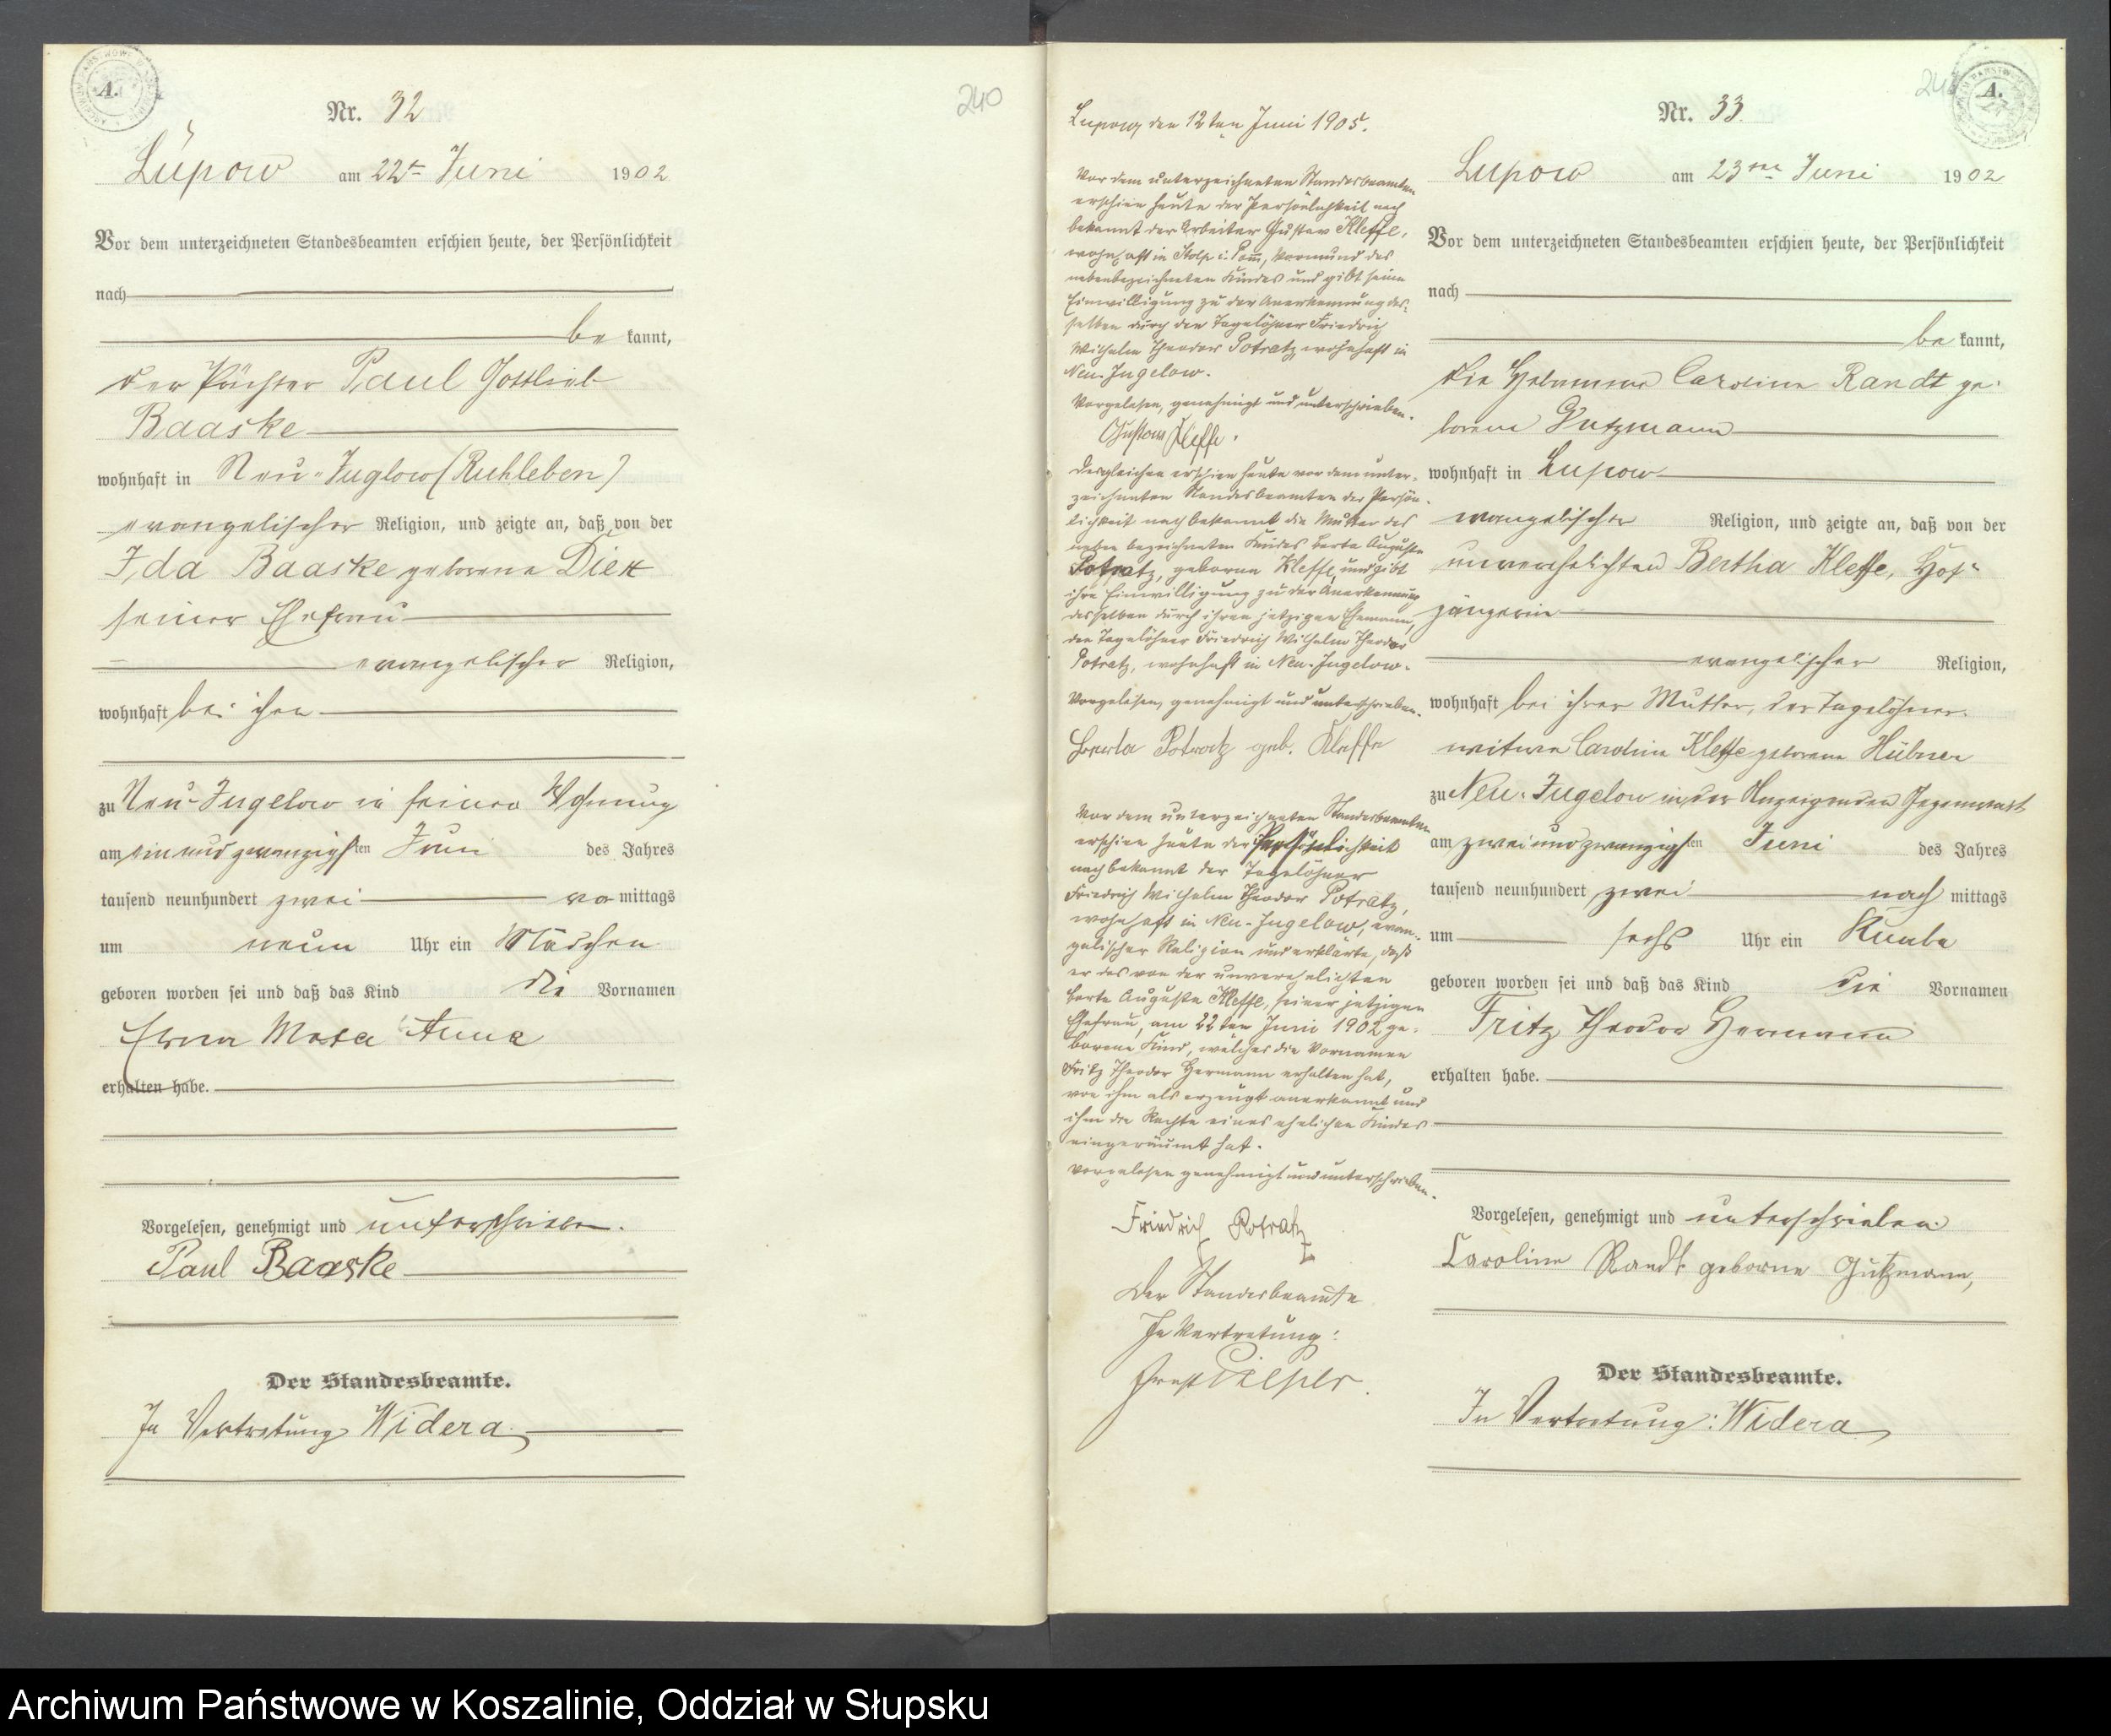 Nr. 32
Lupow am 22t Juni 1902
Vor dem unterzeichneten Standesbeamten erschien heute, der Persönlichkeit
nach
be kannt,
der Pächter Paul Gottlieb
Baaske
wohnhaft in Neu-Juglow (Ruhleben)
evangelischer Religion, und zeigte an, daß von der
Ida Baaske geborene
seiner Ehefrau
evangelischer Religion,
wohnhaft bei ihm
zu Neu-Jugelow in seiner Wohnung
am ein und zwanzigsten Juni des Jahres
tausend neunhundert zwei vor mittags
um neun Uhr ein Mädchen
geboren worden sei und daß das Kind die Vornamen
Anna
erhalten habe.
Vorgelesen, genehmigt und unterschrieben.
Paul Baaske
Der Standesbeamte.
In Vertretung Widera.
240
Lupow, den 12ten Juni 1905.
Vor dem unterzeichneten Standesbeamten
erschien heute der Persönlichkeit nach
bekannt der Arbeiter Gustav Kleffe,
wohnhaft in Stolp i. Pom, Vormund des
nebenbezeichneten Kindes und gibt seine
Einwilligung zu der Anerkennung des-
selben durch den Tagelöhner Friedrich
Wilhelm Theodor Potratz wohnhaft in
Neu-Jugelow.
Vorgelesen, genehmigt und unterschrieben.
Gustav Kleffe.
Desgleichen erschien heute vor dem unter-
zeichneten Standesbeamten der Persön-
lichkeit nach bekannt die Mutter des
neben bezeichneten Kindes Berta Auguste
Potratz, geborene Kleffe, und gibt
ihre Einwilligung zu der Anerkennung
desselben durch ihren jetzigen Ehemann,
den Tagelöhner Friedrich Wilhelm Theodor
Potratz, wohnhaft in Neu-Jugelow.
Vorgelesen, genehmigt und unterschrieben.
Berta Potratz geb. Kleffe
Vor dem unterzeichneten Standesbeamten
erschien heute der Persönlichkeit
nach bekannt der Tagelöhner
Friedrich Wilhelm Theodor Potratz,
wohnhaft in Neu-Jugelow, evan-
gelischer Religion und erklärte, daß
er das von der unverehelichten
Berta Auguste Kleffe, seiner jetzigen
Ehefrau, am 22ten Juni 1902 ge-
borene Kind, welches die Vornamen
Fritz Theodor Hermann erhalten hat,
von ihm als erzeugt anerkannt und
ihm die Rechte eines ehelichen Kindes
eingeräumt hat.
Vorgelesen genehmigt und unterschrieben.
Friedrich Potratz
Der Standesbeamte
In Vertretung:
Nr. 33.
Lupow am 23ten Juni 1902
Vor dem unterzeichneten Standesbeamten erschien heute, der Persönlichkeit
nach
be kannt,
die Hebamme Caroline Randt ge-
borene Gutzmann
wohnhaft in Lupow
evangelischer Religion, und zeigte an, daß von der
unverehelichten Bertha Kleffe, Hof-
gängerin
evangelischer Religion,
wohnhaft bei ihrer Mutter, der Tagelöhner-
witwe Caroline Kleffe geborene Hübner
zu Neu-Jugelow in der Anzeigenden Gegenwart
am zwei und zwanzigsten Juni des Jahres
tausend neunhundert zwei nach mittags
um sechs Uhr ein Knabe
geboren worden sei und daß das Kind die Vornamen
Fritz Theodor Hermann
erhalten habe.
Vorgelesen, genehmigt und unterschrieben.
Caroline Randt geborne Gutzmann,
Der Standesbeamte.
In Vertretung: Widera
Archiwum Państwowe w Koszalinie, Oddział w Słupsku